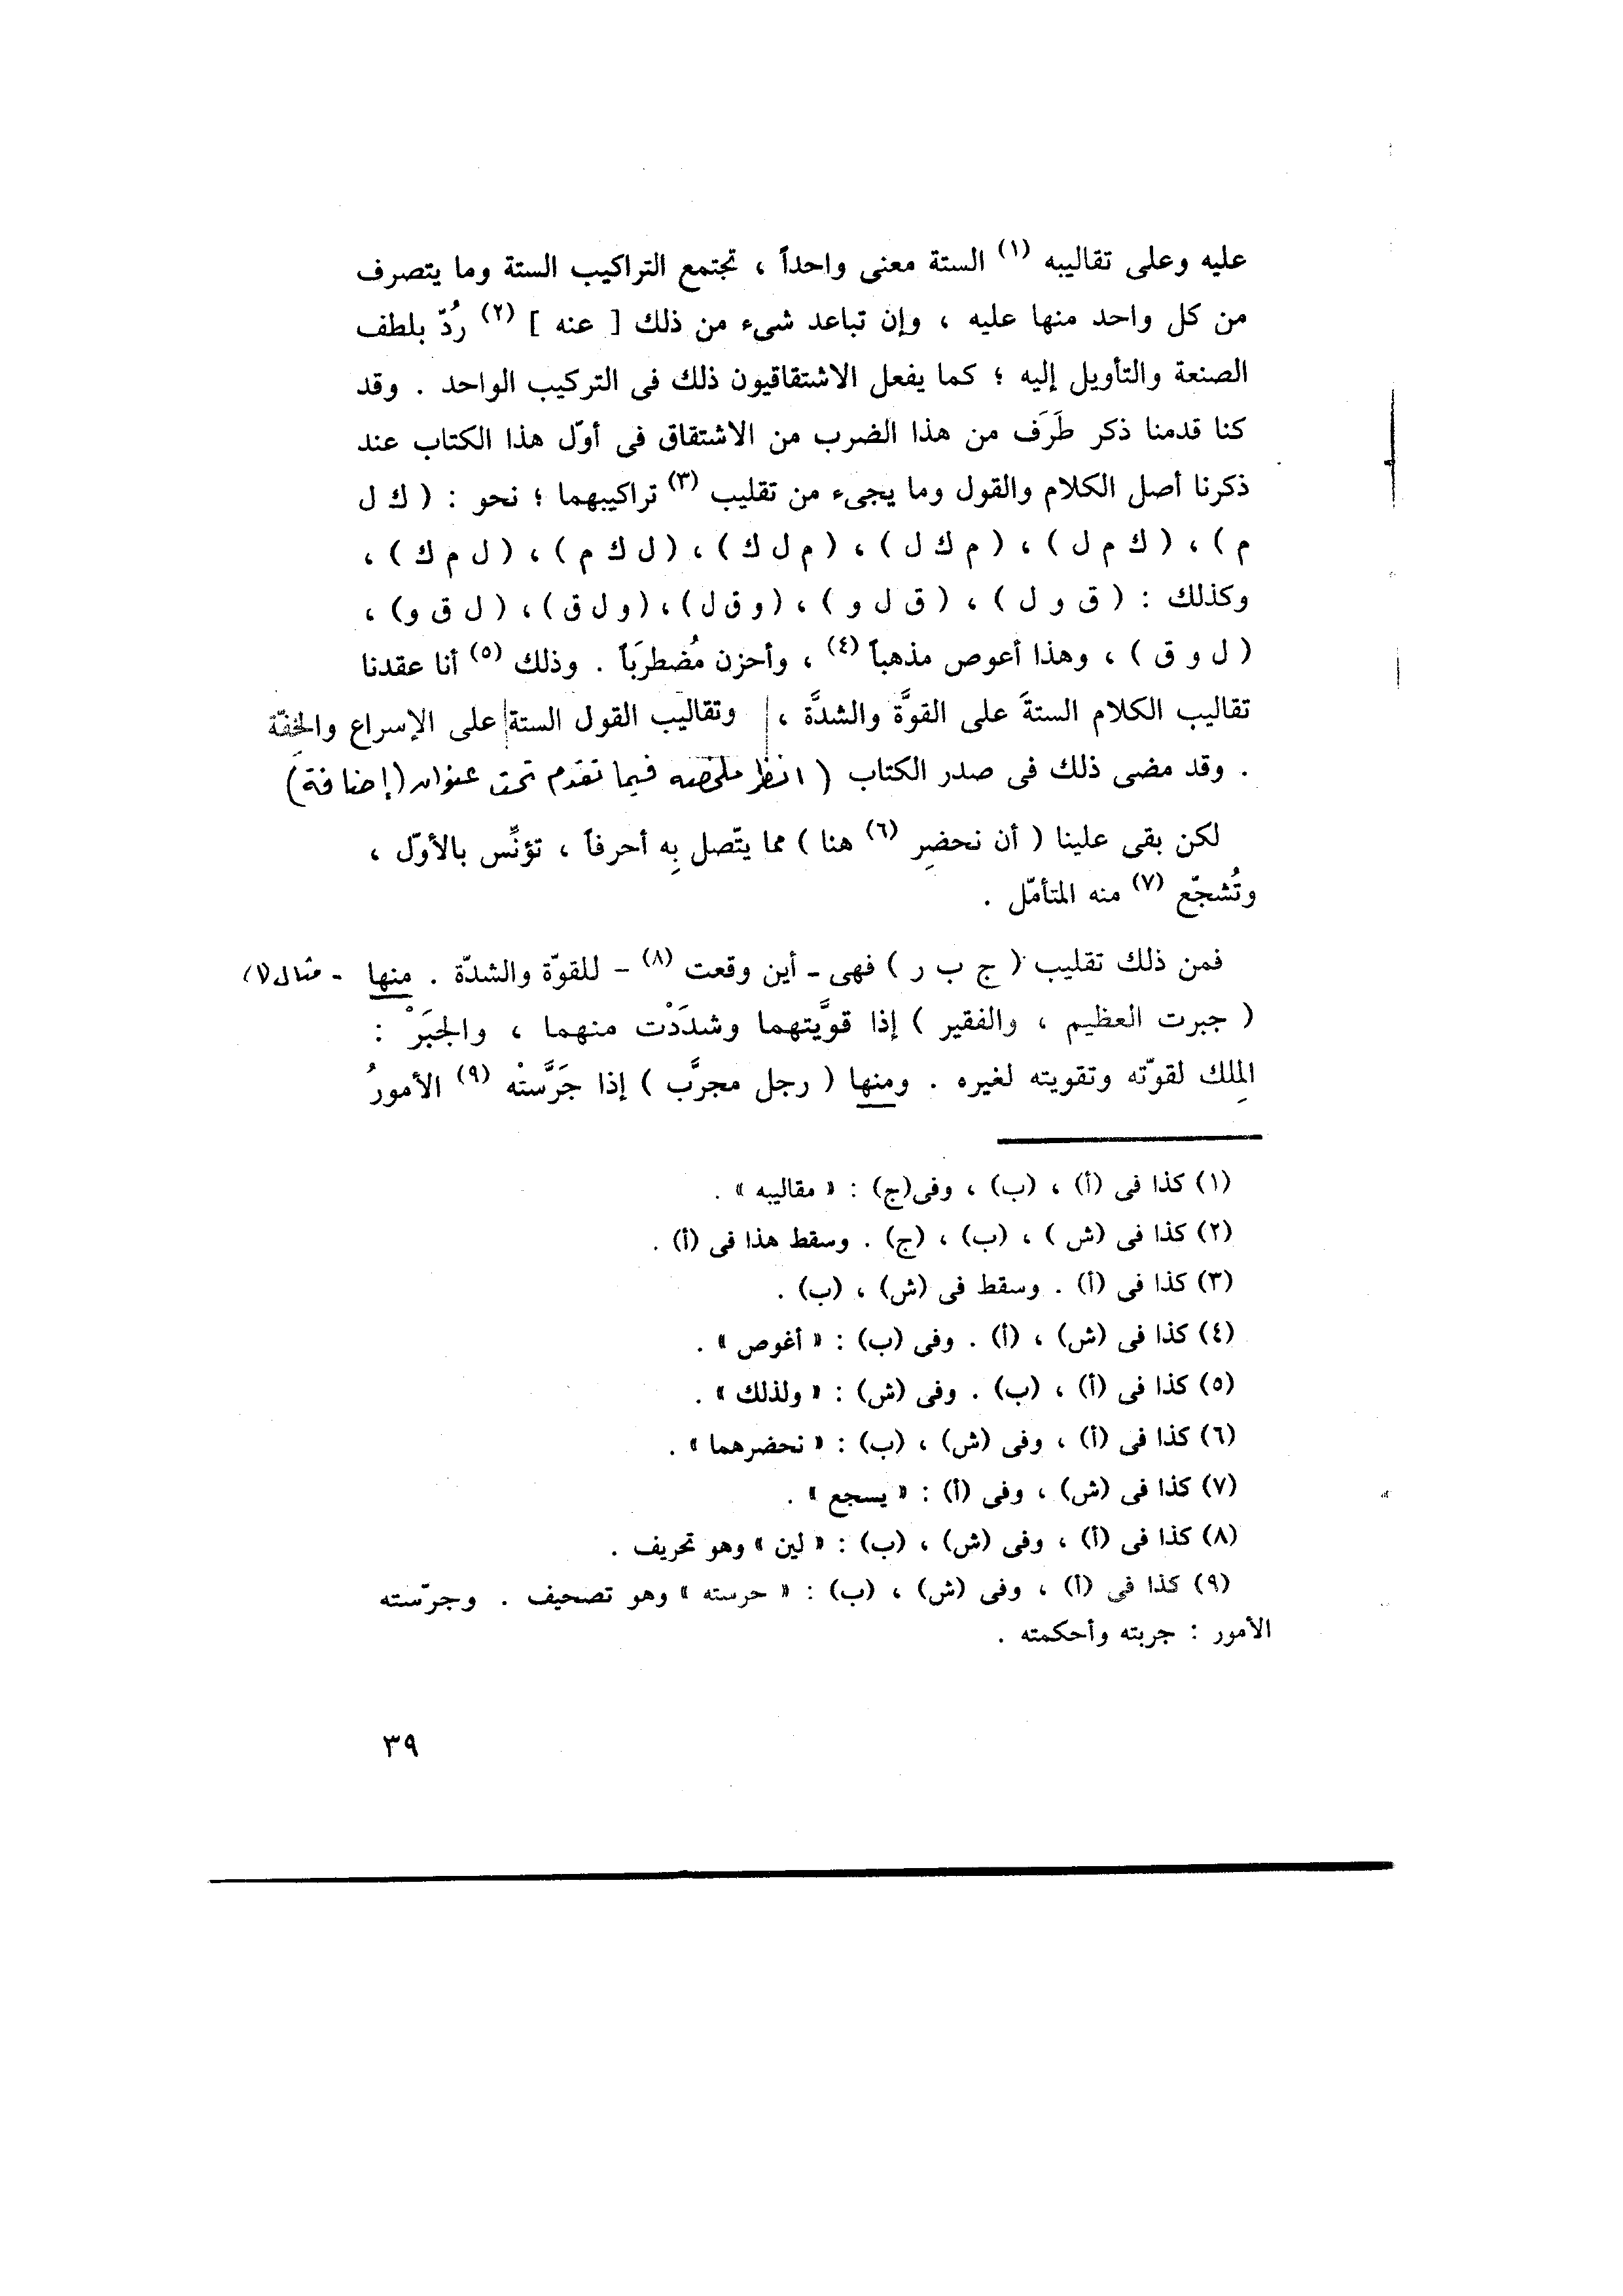 عليه وعلى تقاليبه (١) الستة معنى واحداً ، تجتمع التراكيب الستة وما يتصرف
من كل واحد منها عليه ، وإن تباعد شىء من ذلك [ عنه ] (٢) رُدّ بلطف
الصنعة والتأويل إليه ؛ كما يفعل الاشتقاقيون ذلك فى التركيب الواحد . وقد
كنا قدمنا ذكر طَرَف من هذا الضرب من الاشتقاق فى أوّل هذا الكتاب عند
ذكرنا أصل الكلام والقول وما يجىء من تقليب (٣) تراكيبهما ؛ نحو : ( ك ل
م ) ، ( ك م ل ) ، ( م ك ل ) ، ( م ل ك ) ، ( ل ك م ) ، ( ل م ك ) ،
وكذلك : ( ق و ل ) ، ( ق ل و ) ، ( و ق ل ) ، ( و ل ق ) ، ( ل ق و ) ،
( ل و ق ) ، وهذا أعوص مذهباً (٤) ، وأحزن مُضطرَباً . وذلك (٥) أنا عقدنا
تقاليب الكلام الستةَ على القوَّة والشدَّة ، وتقاليب القول الستة على الإسراع والخِفّة
. وقد مضى ذلك فى صدر الكتاب ( انظر ملخصه فيما تقدم تحت عنوان (إضافة)
لكن بقى علينا ( أن نحضِر (٦) هنا ) مما يتّصل بِه أحرفاً ، تؤنِّس بالأوّل ،
وتُشجّع (٧) منه المتأمّل .
فمن ذلك تقليب ( ج ب ر ) فهى ـ أين وقعت (٨) – للقوّة والشدّة . منها -
( جبرت العظيم ، والفقير ) إذا قوَّيتهما وشددَْت منهما ، والجبَرْ :
المِلك لقوّته وتقويته لغيره . ومنها ( رجل مجرَّب ) إذا جَرَّستْه (٩) الأمورُ
(١) كذا فى (أ) ، (ب) ، وفى(ج) : « مقاليبه » .
(٢) كذا فى (ش ) ، (ب) ، (ج) . وسقط هذا فى (أ) .
(٣) كذا فى (أ) . وسقط فى (ش) ، (ب) .
(٤) كذا فى (ش) ، (أ) . وفى (ب) : « أغوص » .
(٥) كذا فى (أ) ، (ب) . وفى (ش) : « ولذلك » .
(٦) كذا فى (أ) ، وفى (ش) ، (ب) : « نحضرهما » .
(٧) كذا فى (ش) ، وفى (أ) : « يسجع » .
(٨) كذا فى (أ) ، وفى (ش) ، (ب) : « لين » وهو تحريف .
(٩) كذا فى (أ) ، وفى (ش) ، (ب) : « حرسته » وهو تصحيف . وجرّسته
الأمور : جربته وأحكمته .
٣٩